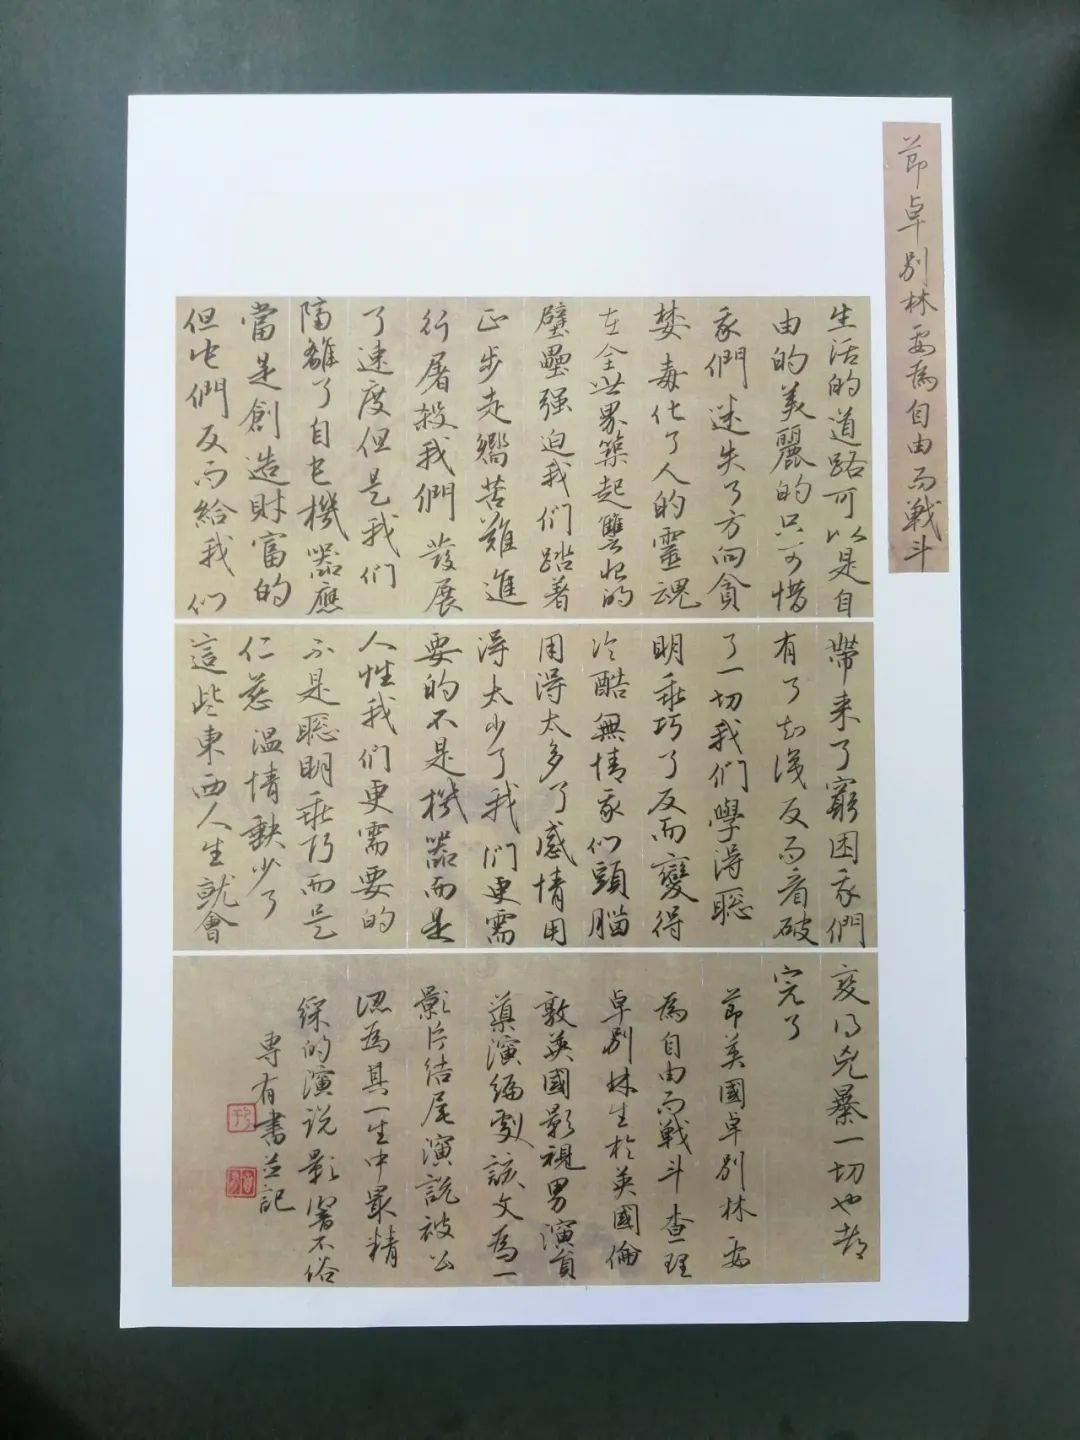 節卓別林要為自由而戰斗
生活的道路可以是自
由的美麗的只可惜
我們迷失了方向貪
婪毒化了人的靈魂
在全世界築起讐恨的
壁壘强迫我们踏着
正步走嚮苦難進
行屠殺我們發展
了速度但是我们
隔離了自己機器應
當是創造財富的
但它們反而給我们
帶来了窮困我們
有了知識反而看破
了一切我们學得聪
明乖巧了反而變得
冷酷無情我们頭腦
用得太多了感情用
得太少了我们更需
要的不是機器而是
人性我们更需要的
不是聪明乖巧而是
仁慈温情缺少了
這些東西人生就會
变得兇暴一切也都
完了
節美國卓別林要
為自由而戰斗查理
卓別林生於英國倫
敦英國影視男演員
導演編劇該文為一
影片结尾演説被公
認為其一生中最精
綵的演说影響不俗
專有書並記